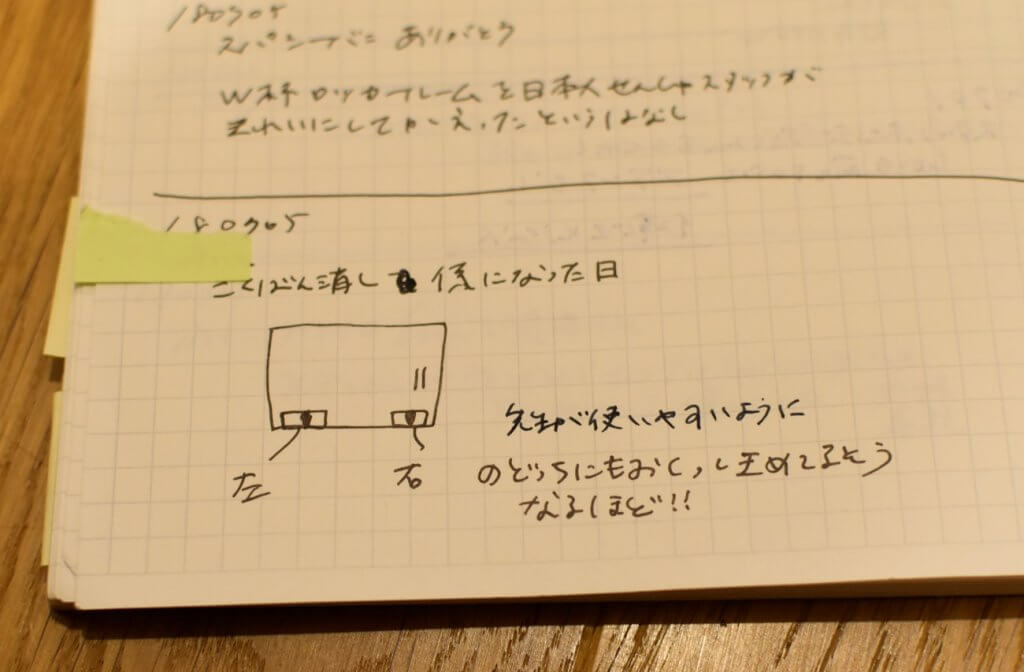 180705
スパシーバに ありがとう
W杯ロッカールームを日本人せんしゅスタッフが
きれいにしてかえったというはなし
180705
こくばん消し 係になった日
左
右
先生が使いやすいように
のどっちにもおく、と決めてるそう
なるほど!!